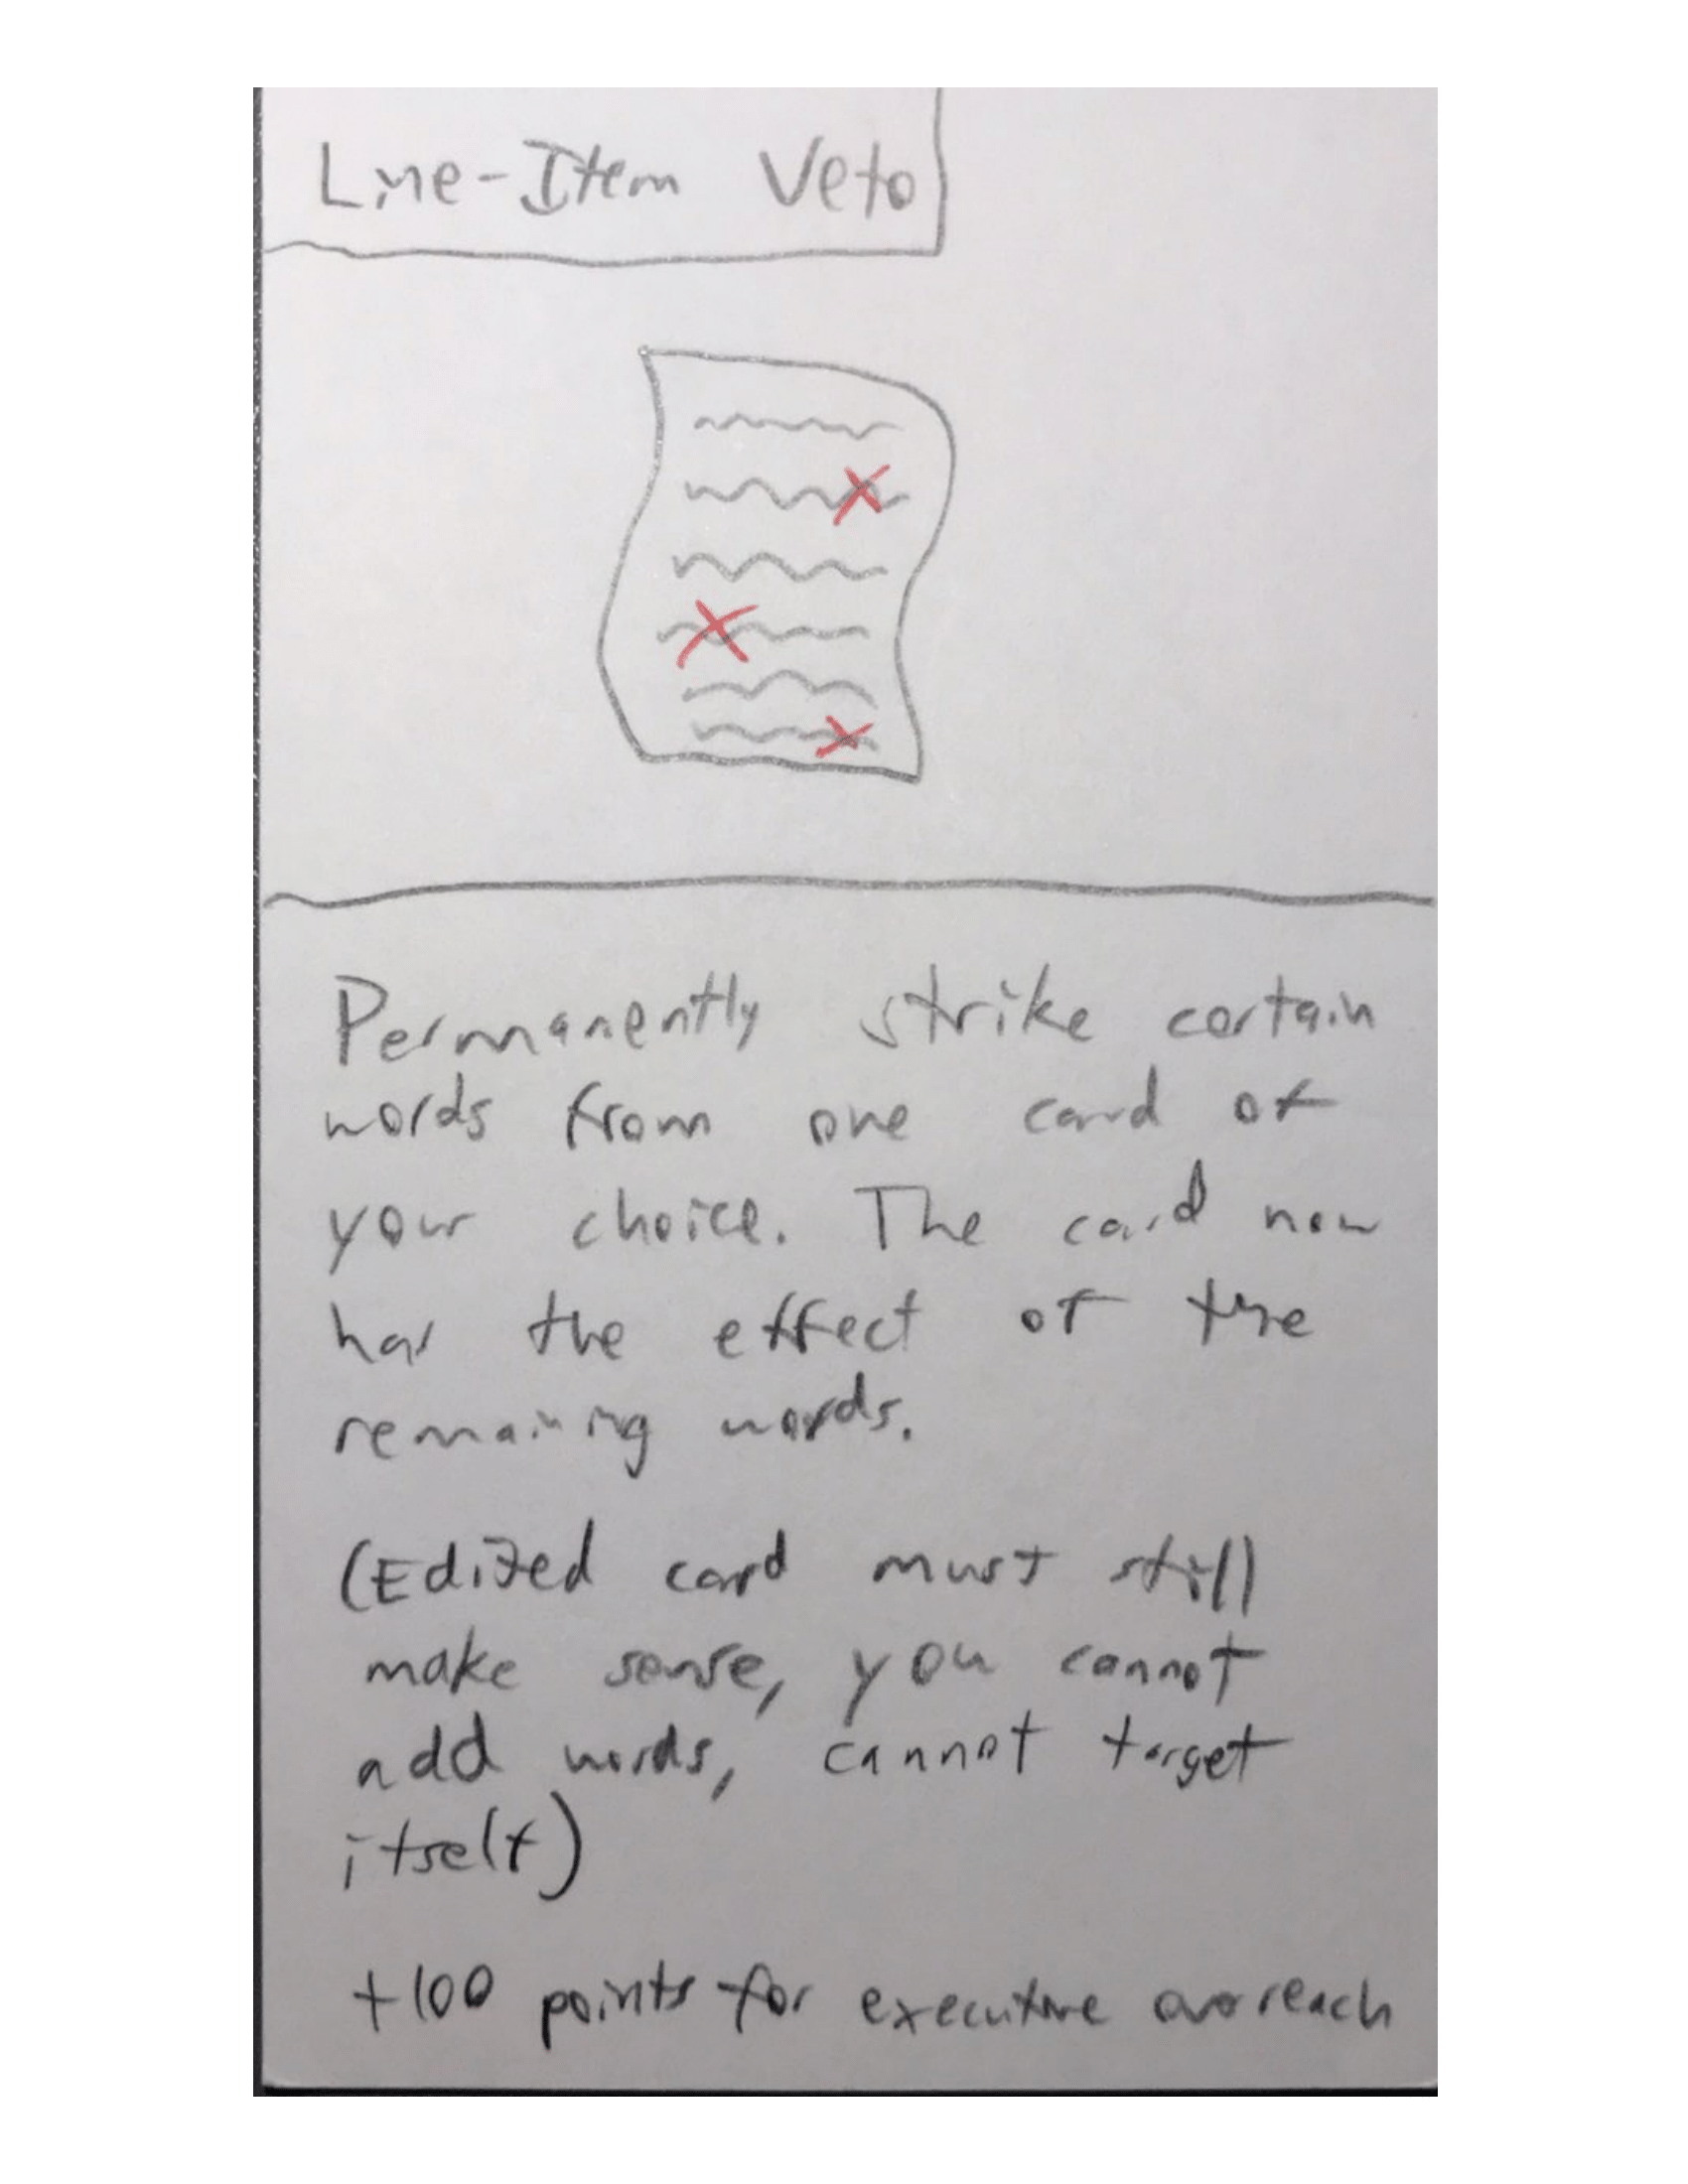 Line-Item Veto
Permanently strike certain
words from one card of
your choice. The card now
has the effect of the
remaining words.
(Edited card must still
make sense, you cannot
add words, cannot target
itself)
+100 points for executive overreach